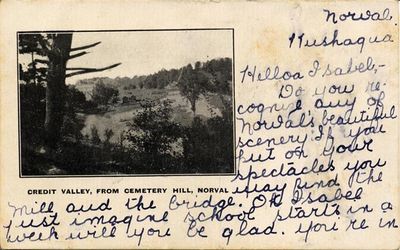 Norval,
Mushaqua
Helloa Isabel,-
Do you re-
cognize any of
Norval's beautiful
scenery. If you
put on your
spectacles you
may find the
CREDIT VALLEY, FROM CEMETERY HILL, NORVAL
Mill and the bridge. Oh Isabel
just imagine school starts in a
week will you be glad. you're in